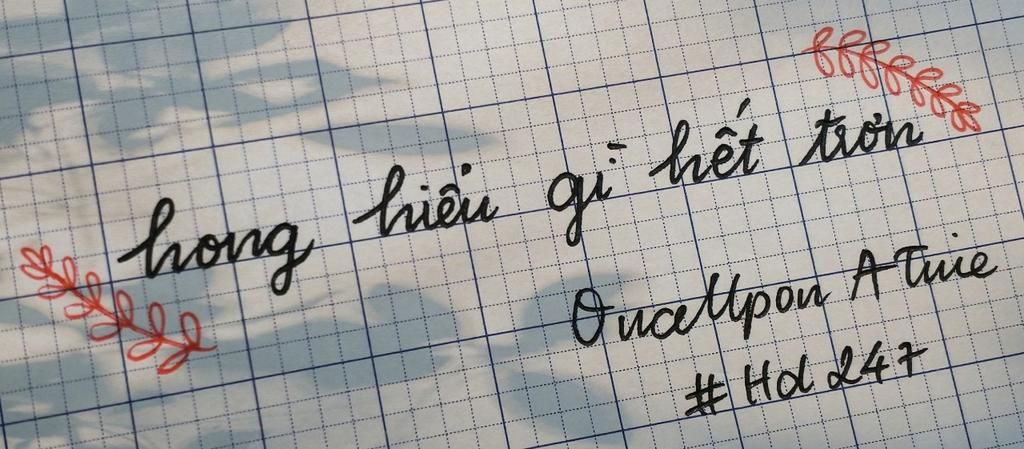 hong hiểu gì hết trơn
OnceUpon A Time
#Hd247